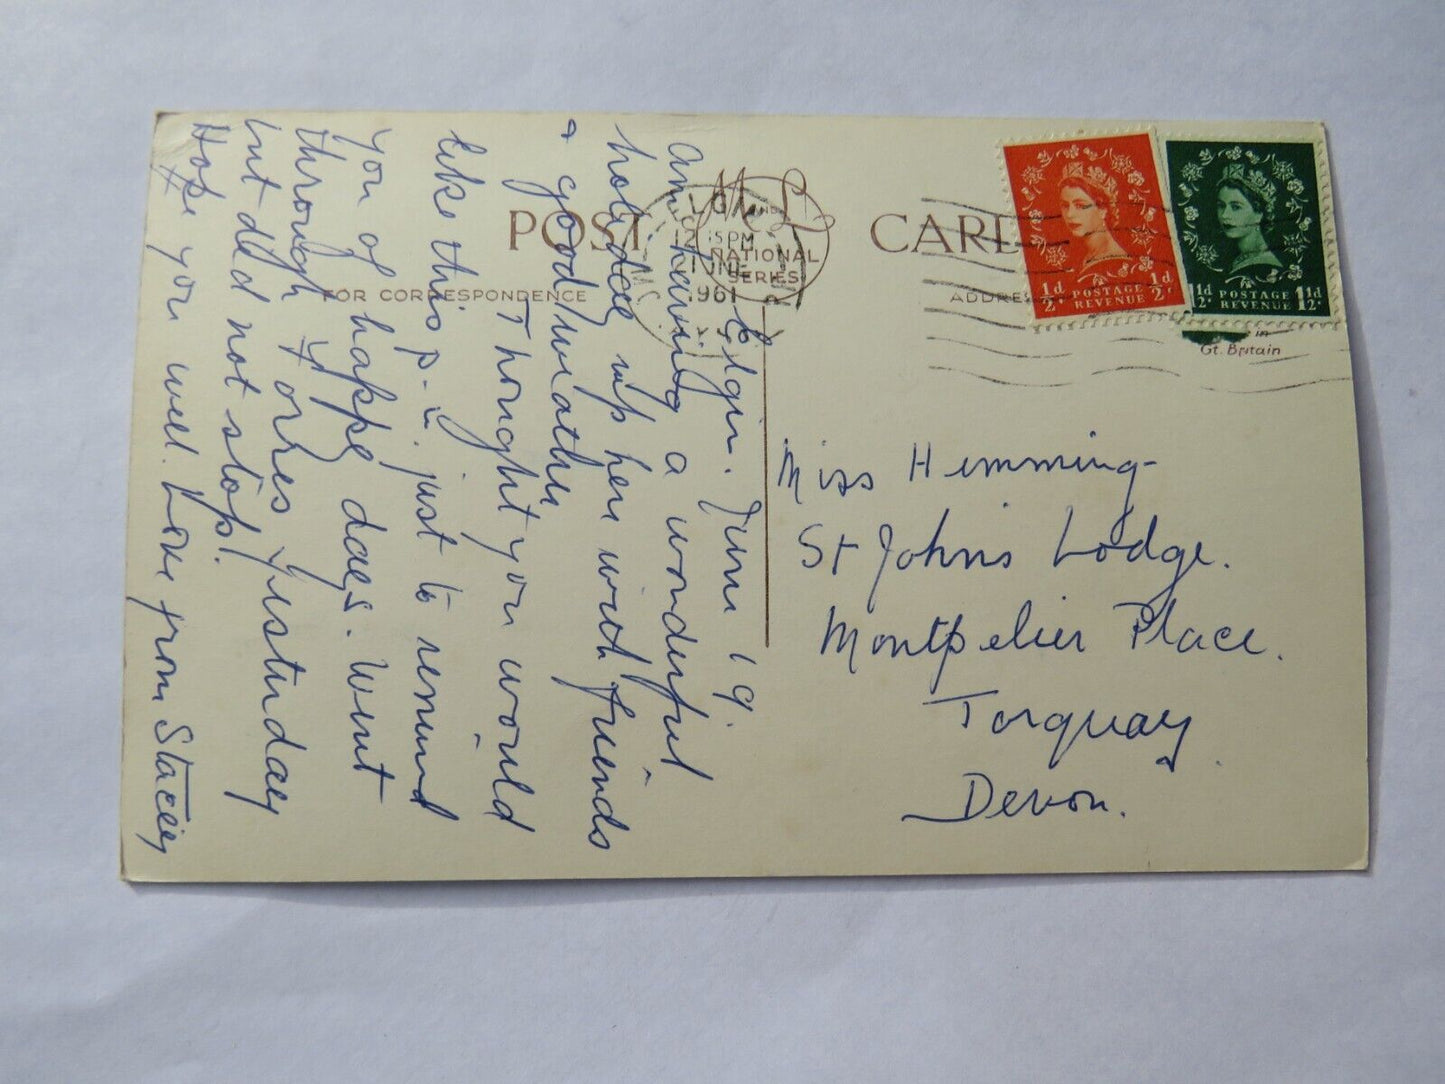 POST CARD
M&L
NATIONAL
SERIES
FOR CORRESPONDENCE
ADDRESS
Gt. Britain
PM
JUNE
1961
½d POSTAGE REVENUE ½d
1½d POSTAGE REVENUE 1½d
Elgin. June 19.
am having a wonderful
holiday up here with friends
& good weather
Thought you would
like this p.c. just to remind
you of happy days. Went
through Forres yesterday
but did not stop!
Hope you well. Love from Stacey
Miss Hemming
St Johns Lodge.
Montpelier Place.
Torquay.
Devon.